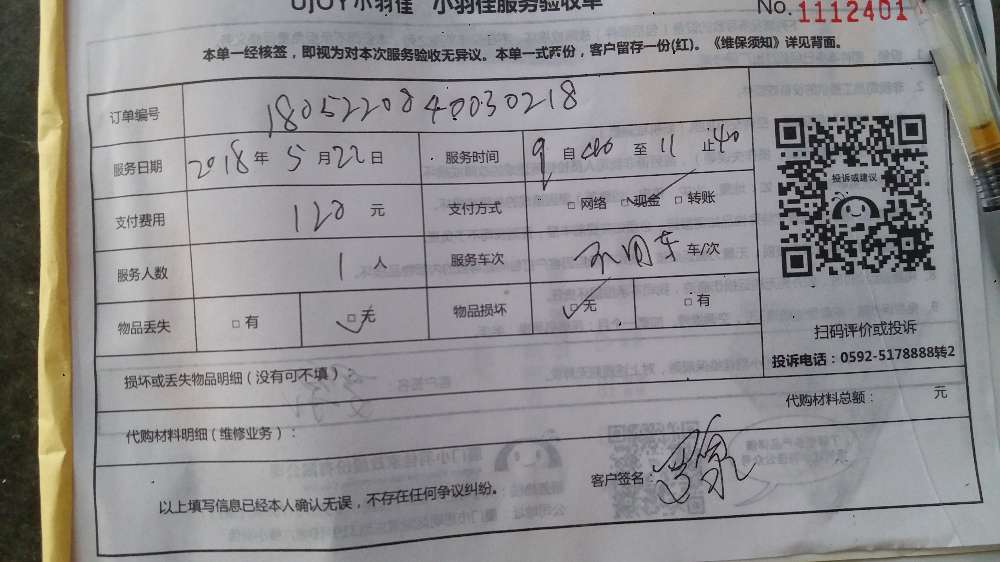 UJOY小羽佳 小羽佳服务验收单
No.1112401
本单一经核签，即视为对本次服务验收无异议。本单一式两份，客户留存一份(红)。《维保须知》详见背面。
订单编号 1805220840030218
服务日期 2018年5月22日 服务时间 9自00至11止40
支付费用 120元 支付方式 □网络 □现金 □转账
服务人数 1人 服务车次 不用车 车/次
物品丢失 □有 □无 物品损坏 □无 □有
投诉或建议
扫码评价或投诉
投诉电话：0592-5178888转2
损坏或丢失物品明细（没有可不填）：
代购材料明细（维修业务）：
代购材料总额： 元
以上填写信息已经本人确认无误，不存在任何争议纠纷。
客户签名：